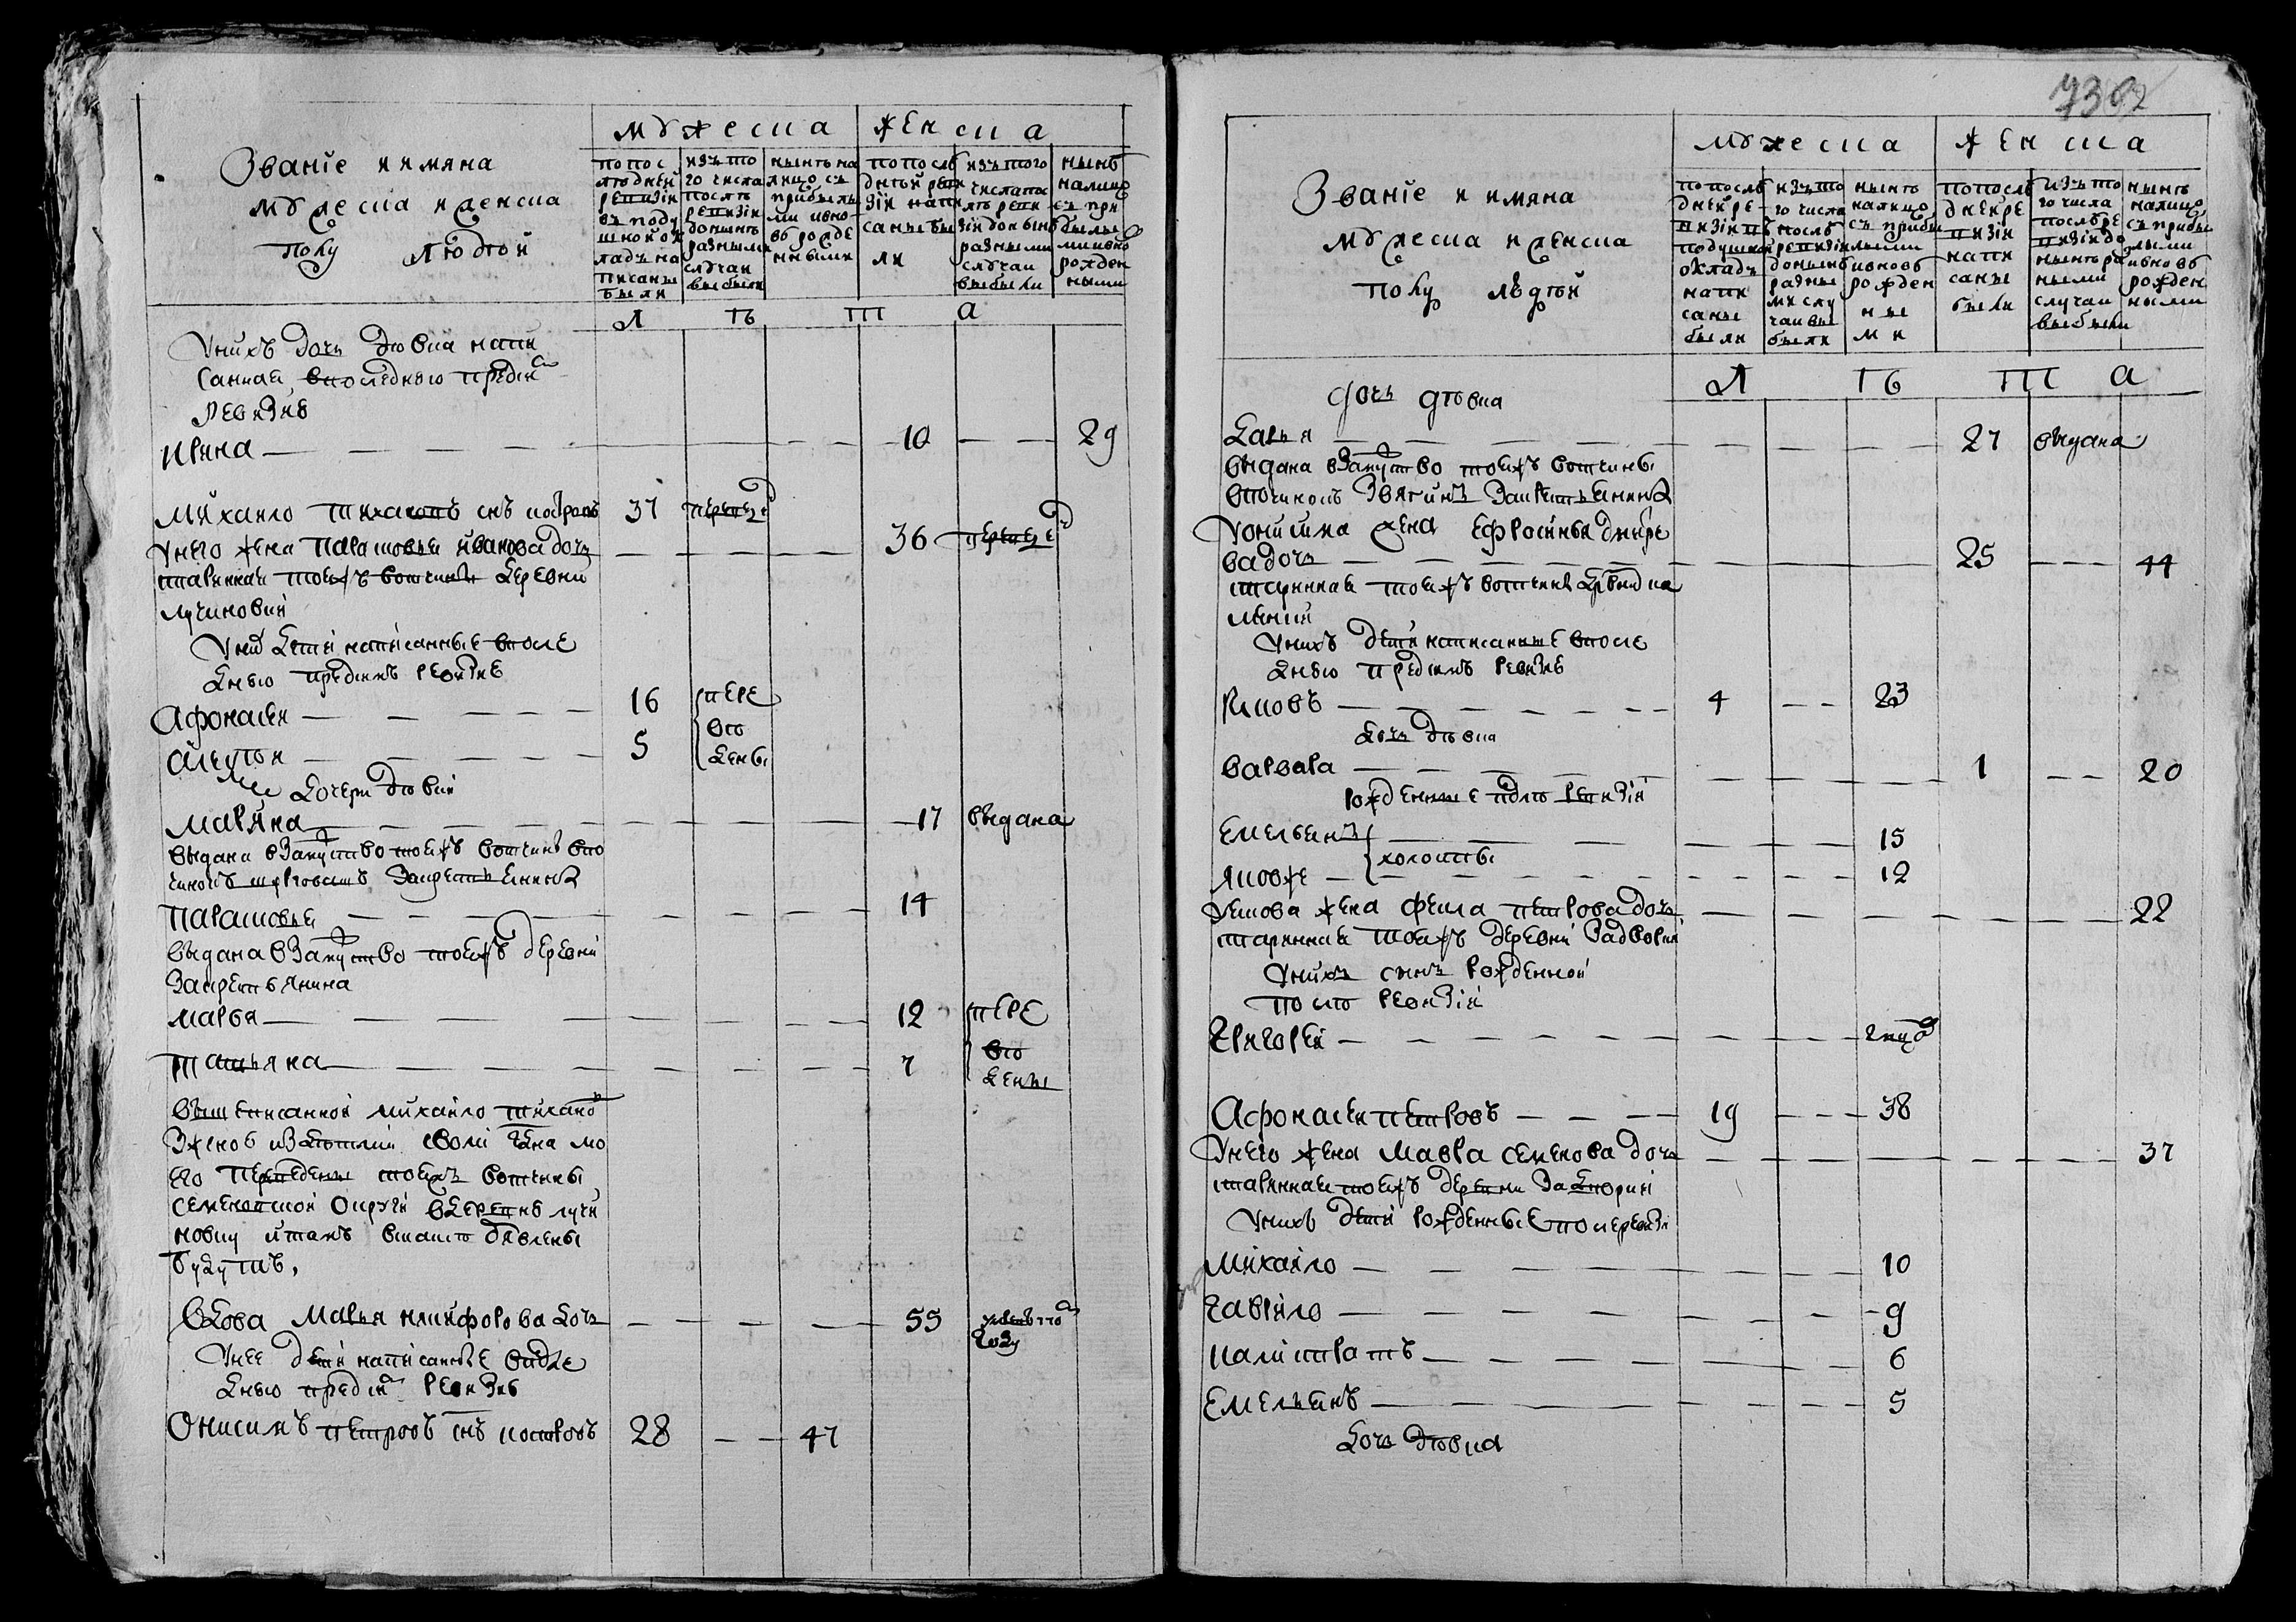 Званiе и имяна
мужеска и женска
полу людѣй
мужеска женска
по пос
лѣдней
ревизiи
въ поду
шной ок
ладъ на
писаны
были
изъ то
го числа
послѣ
ревизiи
донынѣ
разными
случаи
выбыли
нынѣ на
лицо съ
прибылы
ми и вно
въ рожде
нными
по послѣ
дней реви
зiи напи
саны бы
ли
изъ того
числа пос
лѣ реви
зiи донынѣ
разными
случаи
выбыли
нынѣ
налицо
съ при
былы
ми и вно
рожден
ными
Л Ѣ Т А
У нихъ дочь дѣвка напи
санная в последнею пред сим
ревизию
Ирина 10 29
Михаило Тихановъ снъ Костровъ 37 переве
У него жена Парасковья Иванова дочь 36 переве
старинная тоежъ вотчины деревни
Лучиновки
У них дети написанные в после
днею предсимъ ревизие
Афонасеи 16 пере
Алексѣи 5 ве
дены
дочери дѣвки
Марина 17 выдана
выдана в замужство тоежъ вотчины в по
чинокъ за крестьянина
Парасковья 14
выдана в замужство тоежъ деревни
за крестьянина
Марья 12 пере
Татьяна 7 ве
дены
вышеписанной Михаило Тиханов
з женою и з детми своими
его переведены тоежъ вотчины
Семеновской округи в деревню Лучи
новку и тамъ в скаске обявлены
будутъ,
Вдова Марья Никифорова дочь 55
году
У нее дети написанные в после
днею пред сим ревизие
Онисимъ Петровъ снъ Костровъ 28 47
Званiе и имяна
мужеска и женска
полу людѣй
мужеска женска
по послѣ
дней ре
визiи въ
подушной
окладъ
напи
саны
были
изъ то
го числа
послѣ
ревизiи
донынѣ
разны
ми слу
чаи вы
были
нынѣ
налицо
съ прибы
лыми
и вновь
рожден
ны
ми
по послѣ
дней ре
визiи
напи
саны
были
изъ то
го числа
послѣ ре
визiи до
нынѣ раз
ными
случаи
выбыли
нынѣ
налицо
съ прибы
лыми
и вновь
рожден
ными
Л Ѣ Т А
дочь дѣвка
Дарья 27 выдана
выдана в замужство тоежъ вотчины
в починокъ Звягинъ за крестьянина
У Онисима жена Ефросинья Андрѣе
ва дочь 25 44
старинная тоежъ вотчины
У нихъ дети написанные в после
днею предсимъ ревизие
Яковъ 4 23
дочь дѣвка
Варвара 1 20
рожденные после ревизiи
Емельянъ 15
холосты
Яковже 12
У Якова жена Фекла Петрова дочь 22
старинная тоежъ деревни Задворки
У нихъ сынъ рожденной
после ревизiи
Григореи
Афонасеи Петровъ 19 38
У него жена Мавра Семенова дочь 37
старинная тоежъ деревни
У нихъ дети рожденные после ревизи
Михаило 10
Гаврило 9
Калистратъ 6
Емельянъ 5
дочь дѣвка